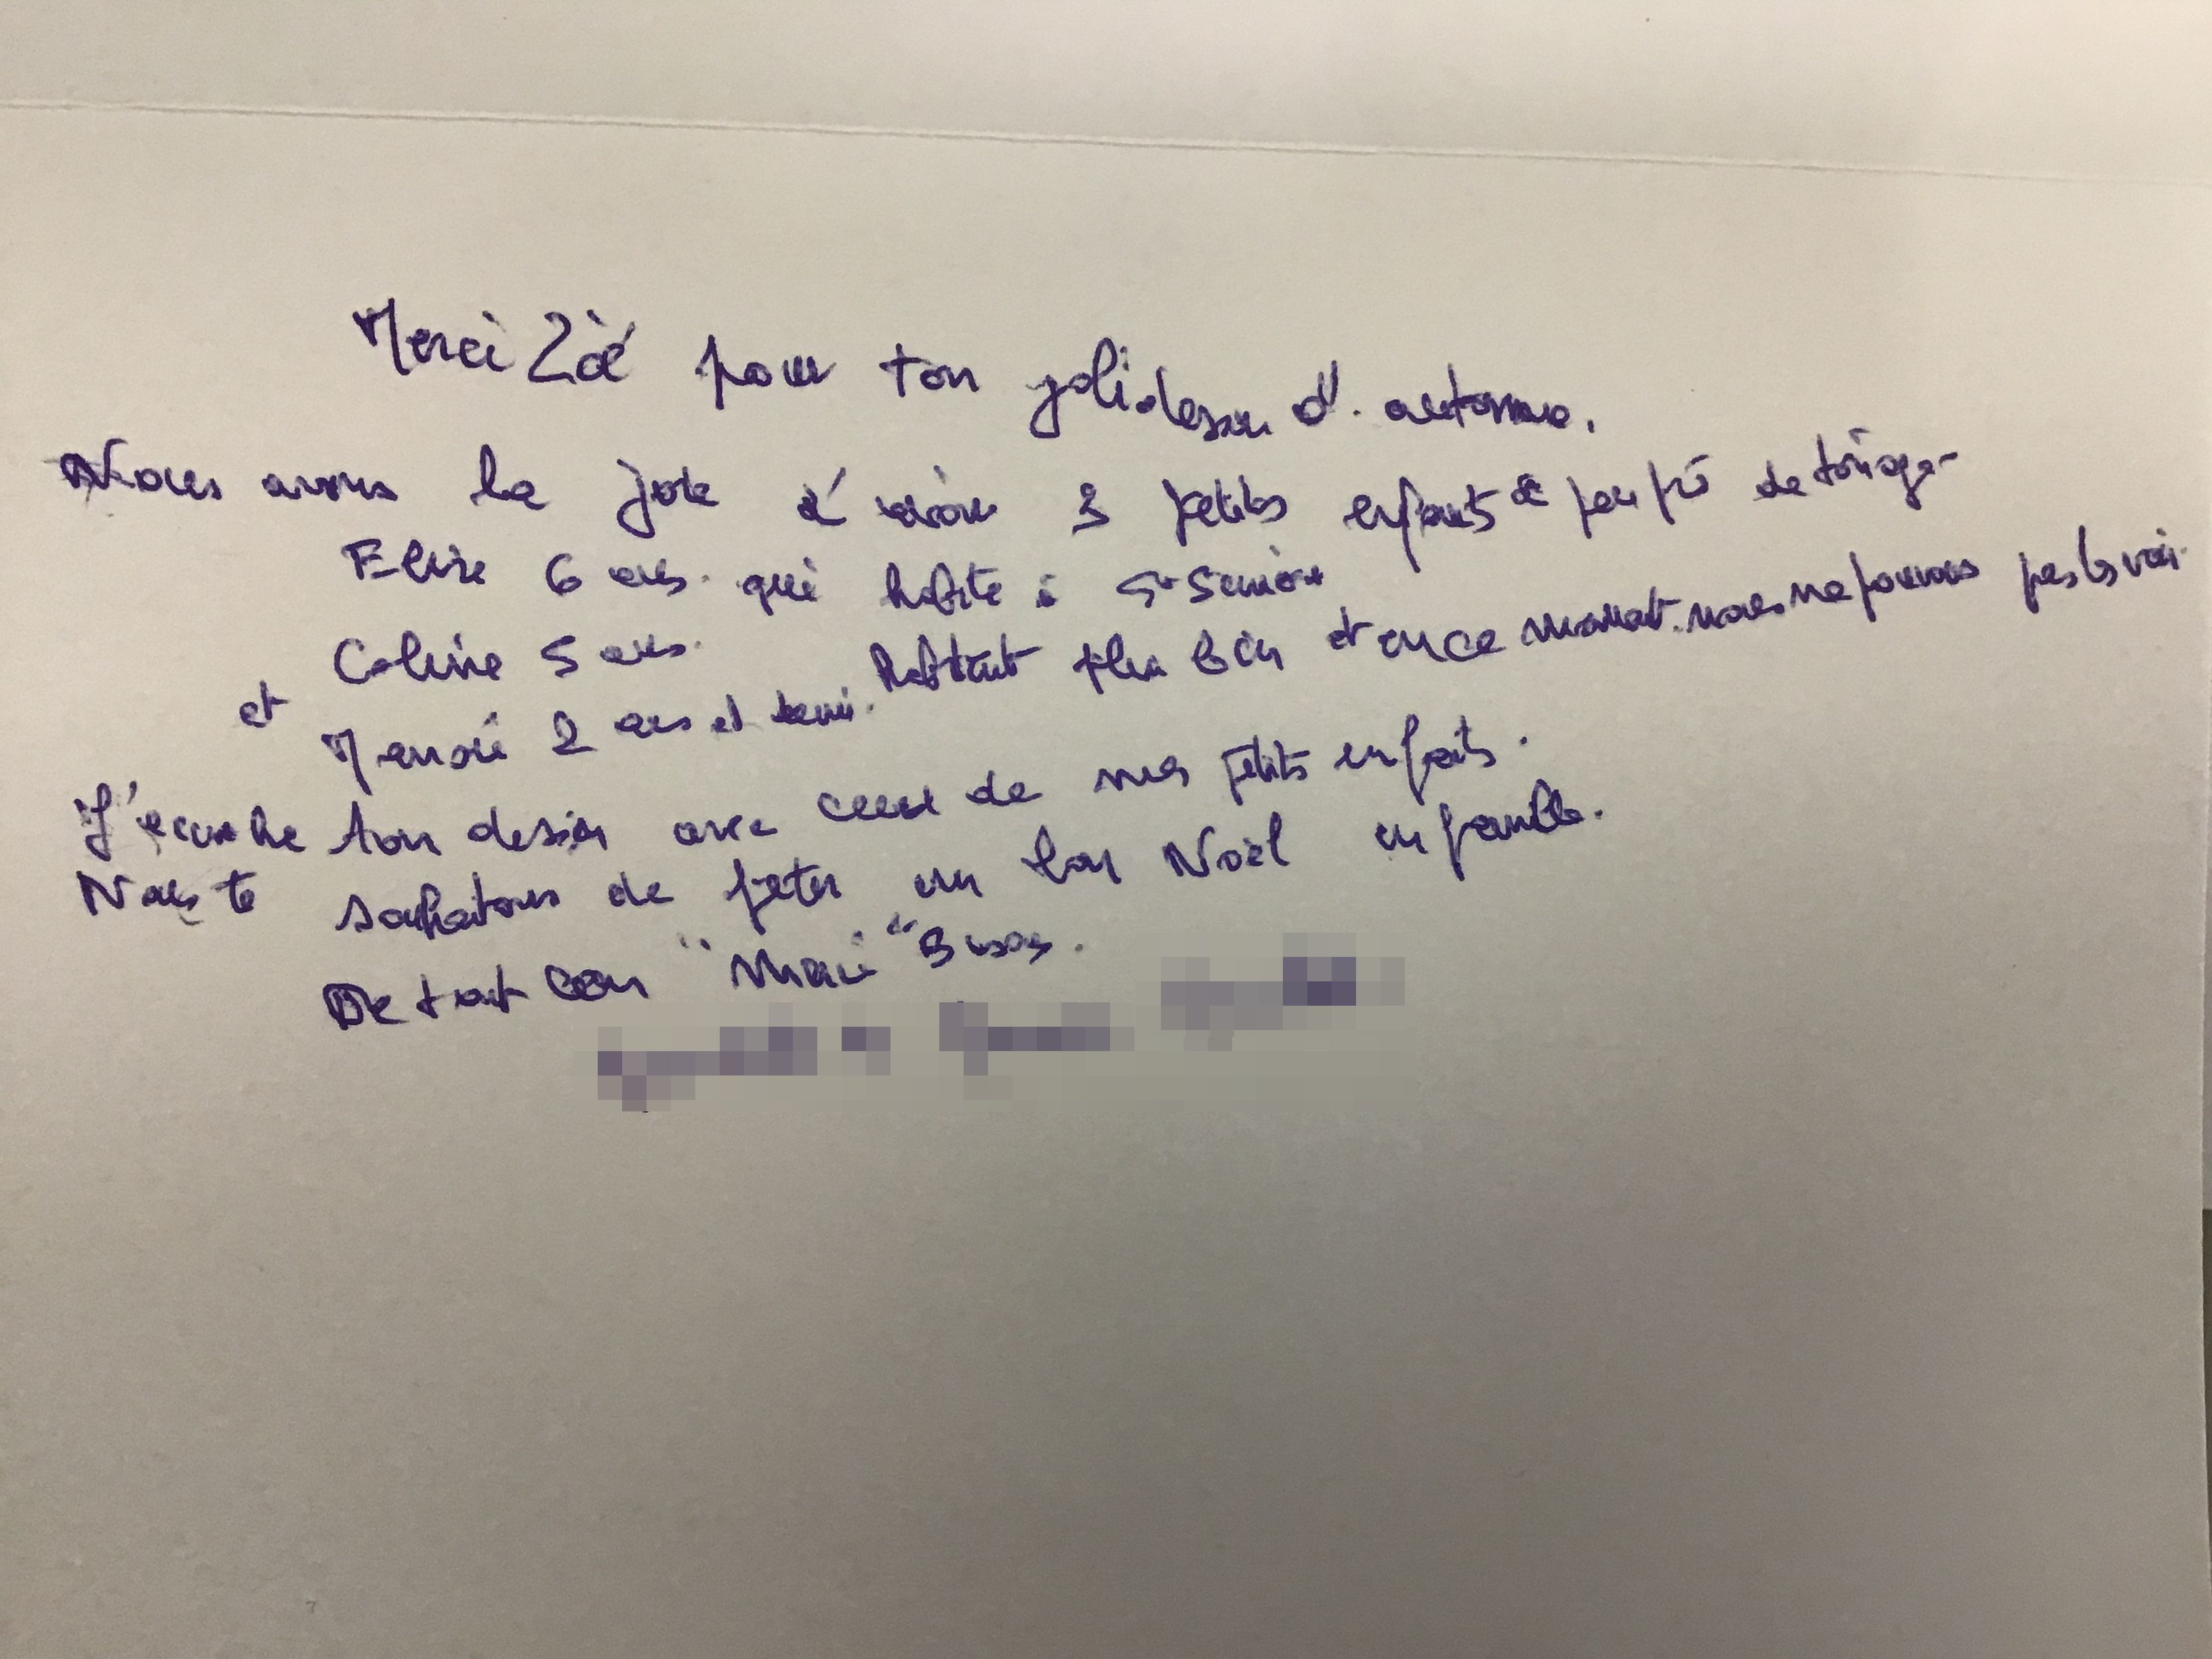 Merci Zoé pour ton joli dessin d'automne.
Nous avons la joie d'avoir 3 petits enfants à peu près de ton age-
Elise 6 ans. qui habite à St
Celine 5 ans. habitent plus loin et en ce moment. nous ne pouvons pas les voir.
et 2 ans et demi.
J'accroche ton dessin avec ceux de mes petits enfants.
Nous te souhaitons de fêter un bon Noël en famille.
De tout cœur "Merci" Bisous.